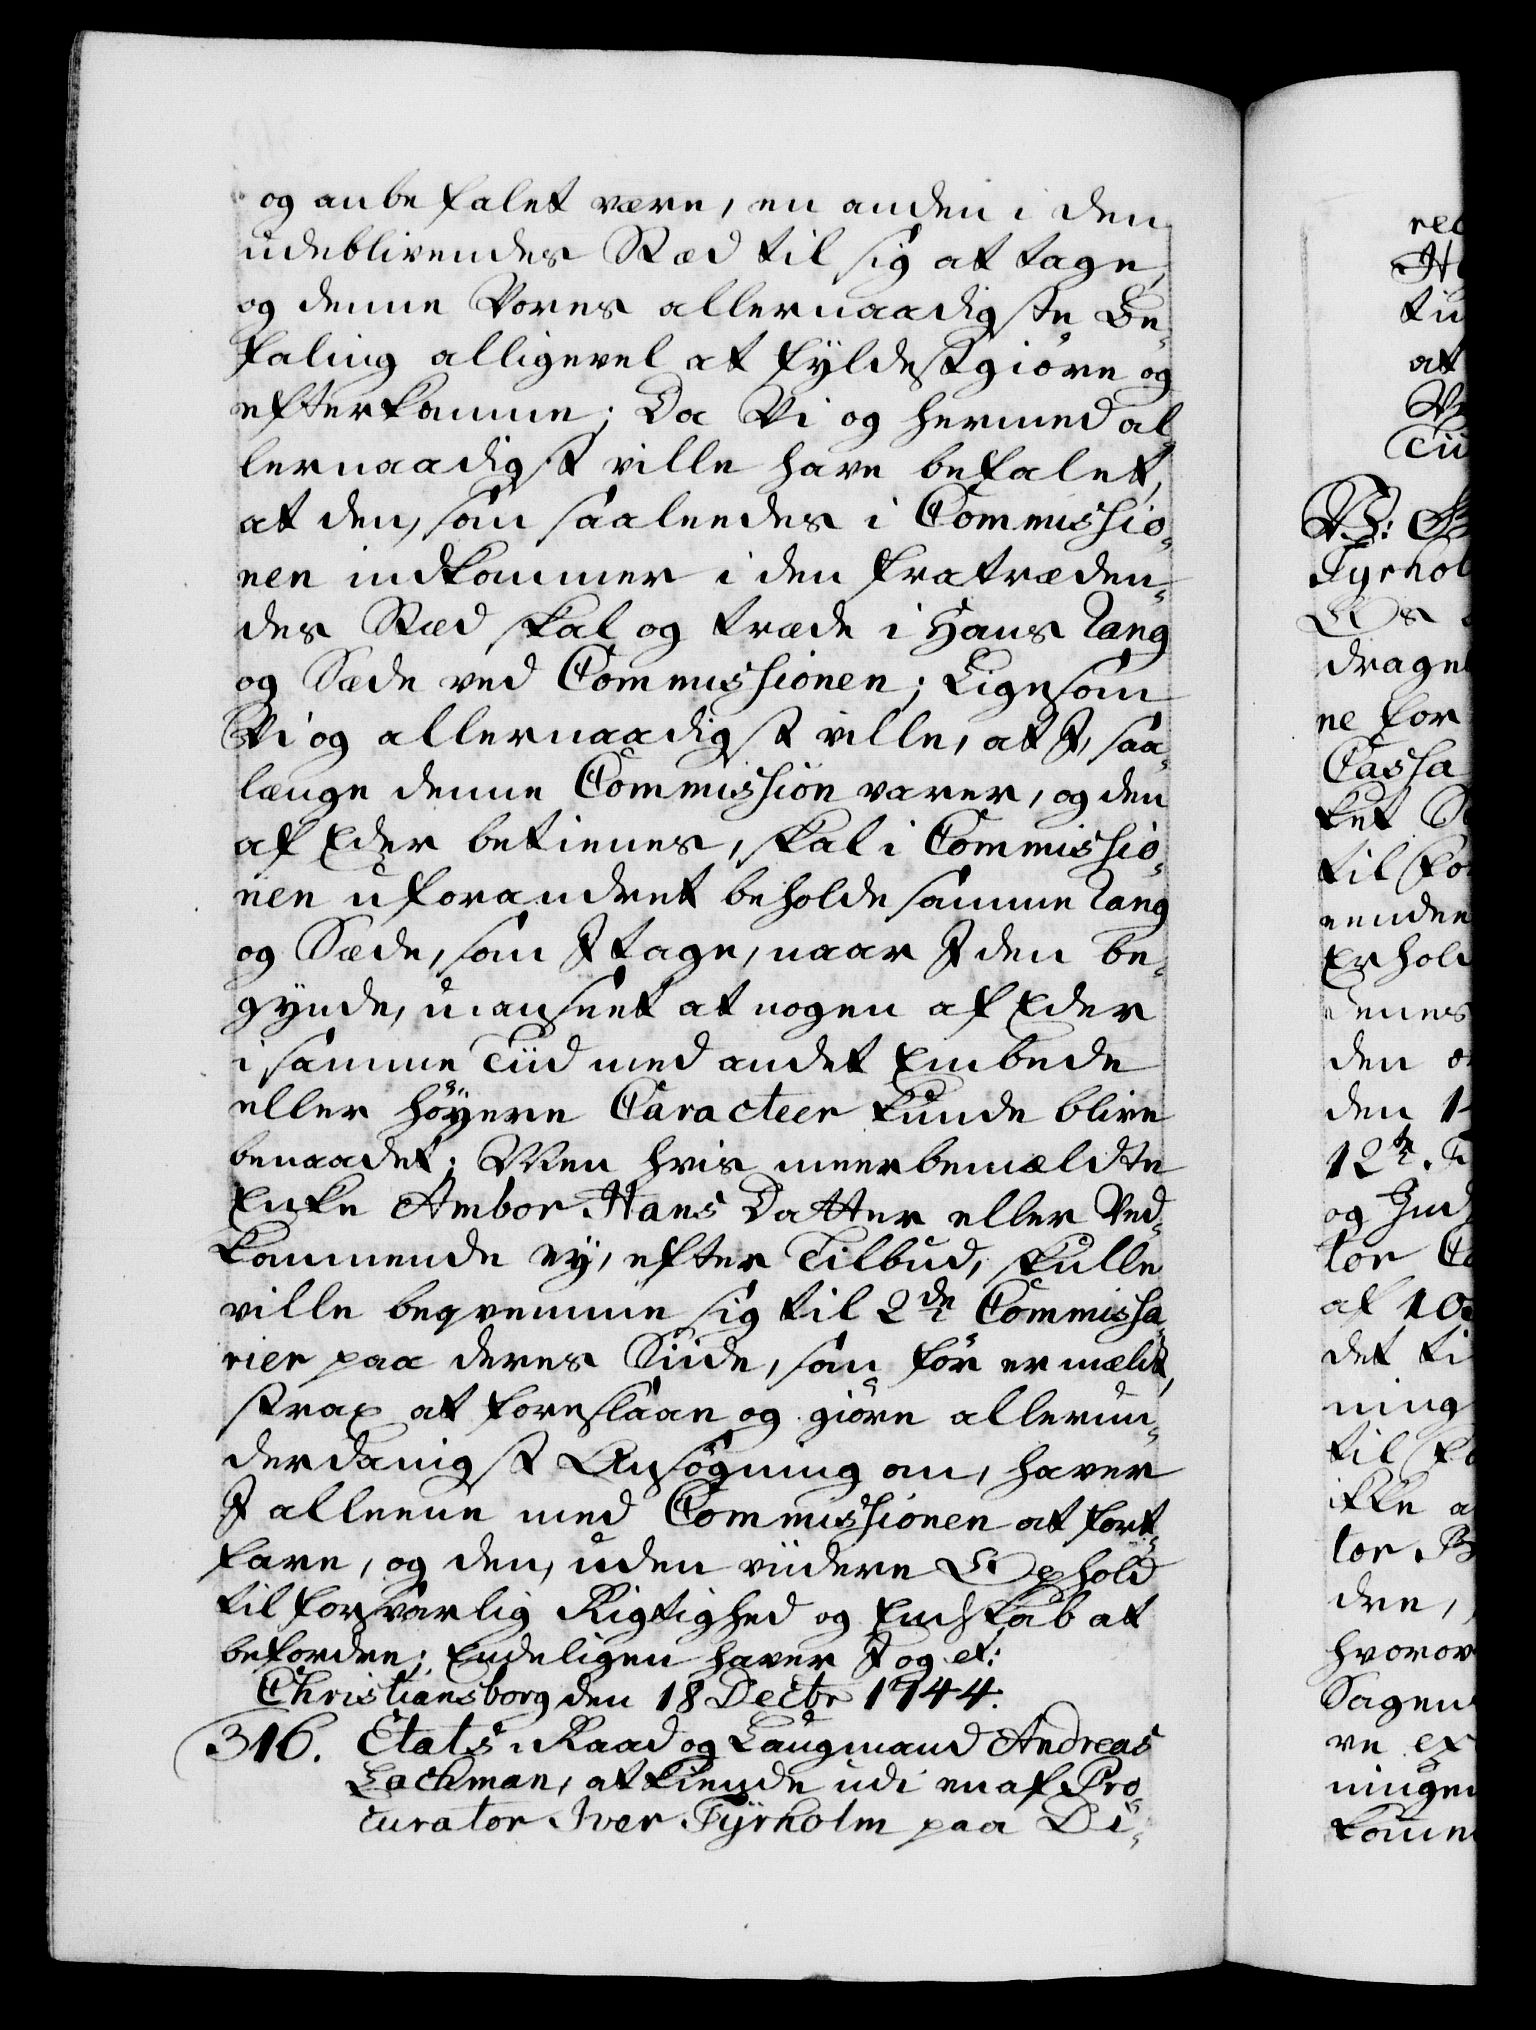 og anbefalet være, en anden i den
udeblivendes Stæd til sig at tage,
og denne Vores allernaadigste Be-
faling alligevel at fyldestgiøre og
efterkomme; Da Vi og hermed al-
lernaadigst ville have befalet,
at den, som saaleedes i Commissio-
nen indkommer i den fratræden-
des Stæd skal og træde i Hans Rang
og Sæde ved Commissionen; Ligesom
Vi og allernaadigst ville, at I, saa
længe denne Commission varer, og den
af Eder betienes, skal i Commissio-
nen uforandret beholde samme Rang
og Sæde, som I tage, naar I den be-
gynde, uanseet at nogen af Eder
i samme Tiid med andet Embede
eller høyere Caracteer kunde blive
benaadet; Men hvis meerbemældte
Enke Ambor Hans Datter eller Ved-
kommende ey, efter Tilbud, skulle
ville beqvemme sig til 2de Commissa-
rier paa deres Siide, som før er mældt,
strax at foreslaae og giøre allerun-
derdanigst Ansøgning om, haver
I alleene med Commissionen at fort-
fare, og den, uden viidere Ophold
til forsvarlig Rigtighed og Endskab at
befordre; Endeligen haver I og et:
Christiansborg den 18 Decbr 1744.
316. Etats-Raad og Laugmand Andreas
Lachman, at kiende udi en af Pro-
curator Iver Tyrholm paa Di-
rec
tii
at
Tii
Tyrhol
drage
ne for
Cassa
ket
til
Erhold
den
den 1
12te
og Ind
tor
af 10
det ti
ning
til
ikke a
tor B
dre,
hvorov
Sagen
ve ex
ninge
komm